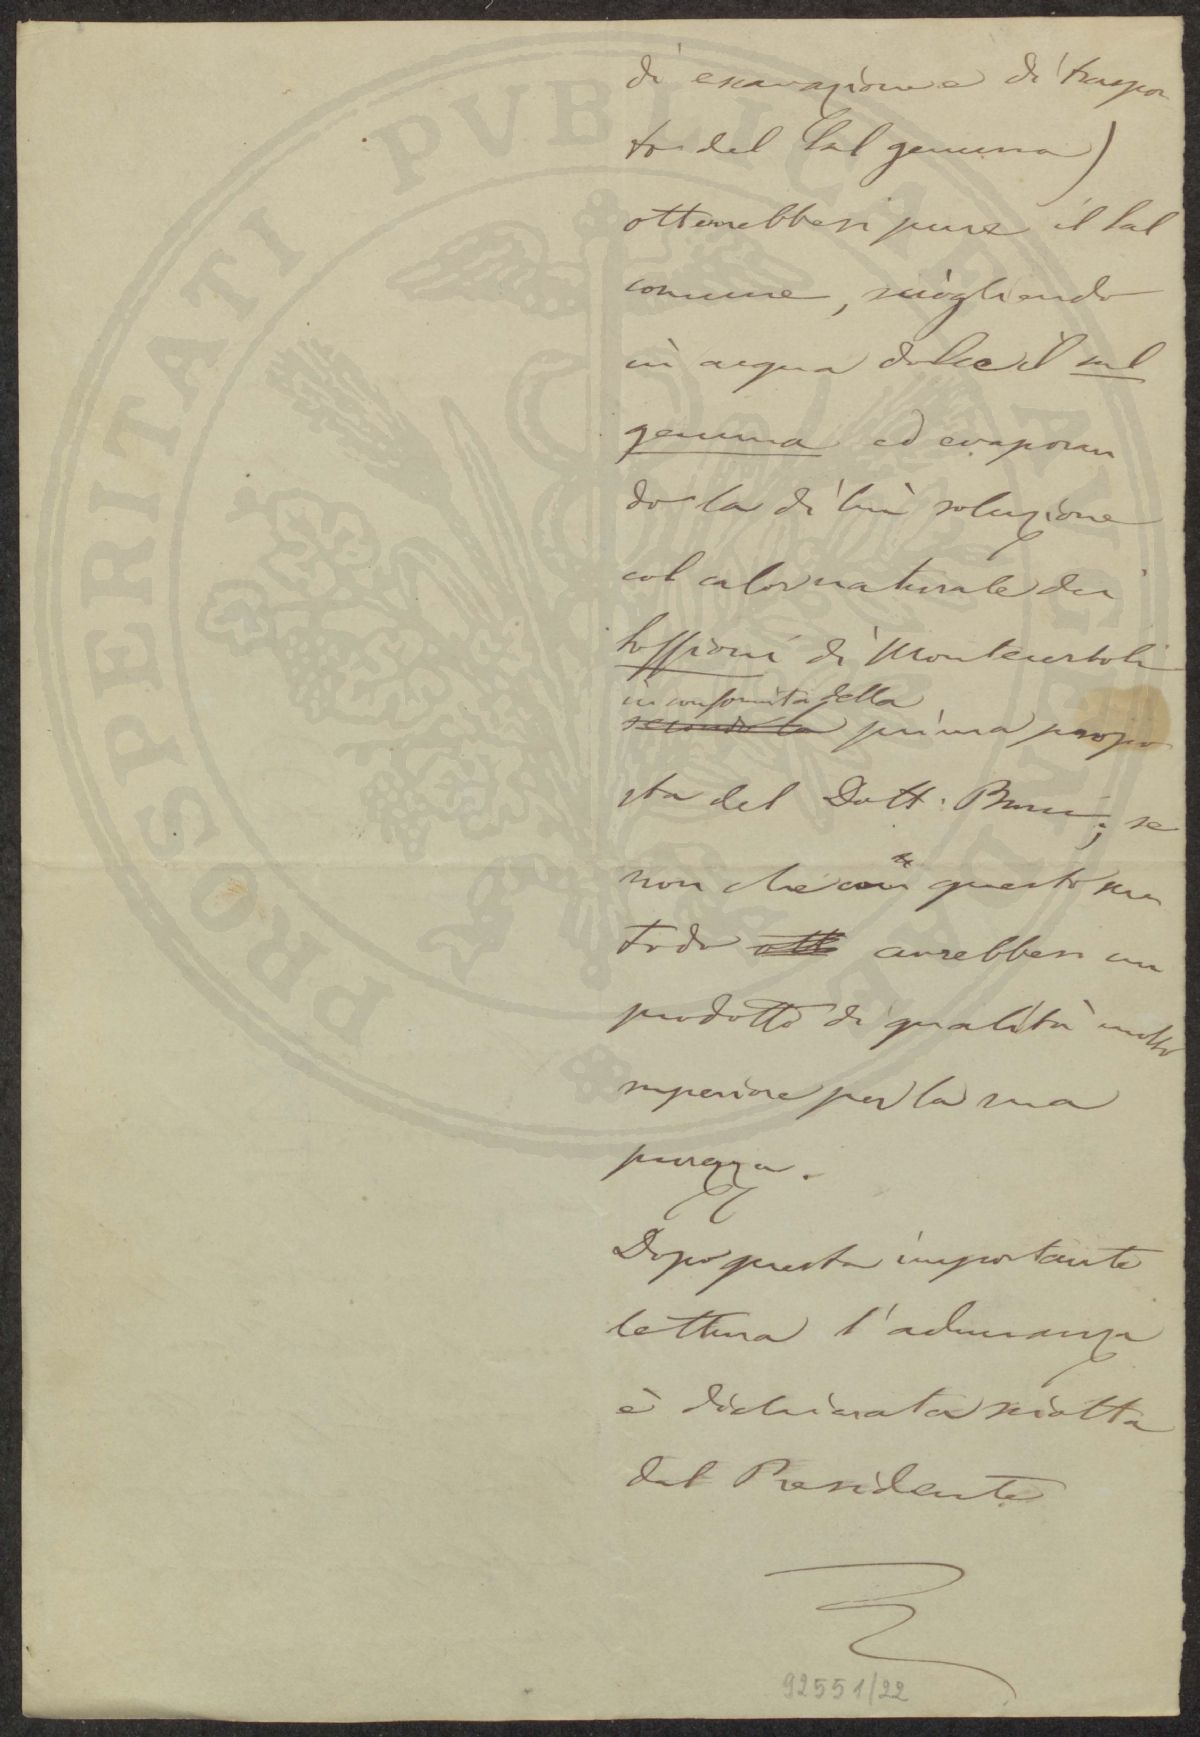 di escavazione e di traspor
to del Sal gemma)
otterrebbesi pure il Sal
comune, sciogliendo
in acqua dolce il sal
gemma ed evaporan
do la di lui soluzione
col calor naturale dei
soffioni di Montecerboli
in conformità della
secondo la prima propo
sta del Dott. ; se
non che con questo me
todo ott avrebbesi un
prodotto di qualità molto
superiore per la sua
purezza.
Dopo questa importante
lettura l'adunanza
è dichiarata sciolta
dal Presidente
92551/22
PROSPERITATI PVBLICAE AVGENDAE